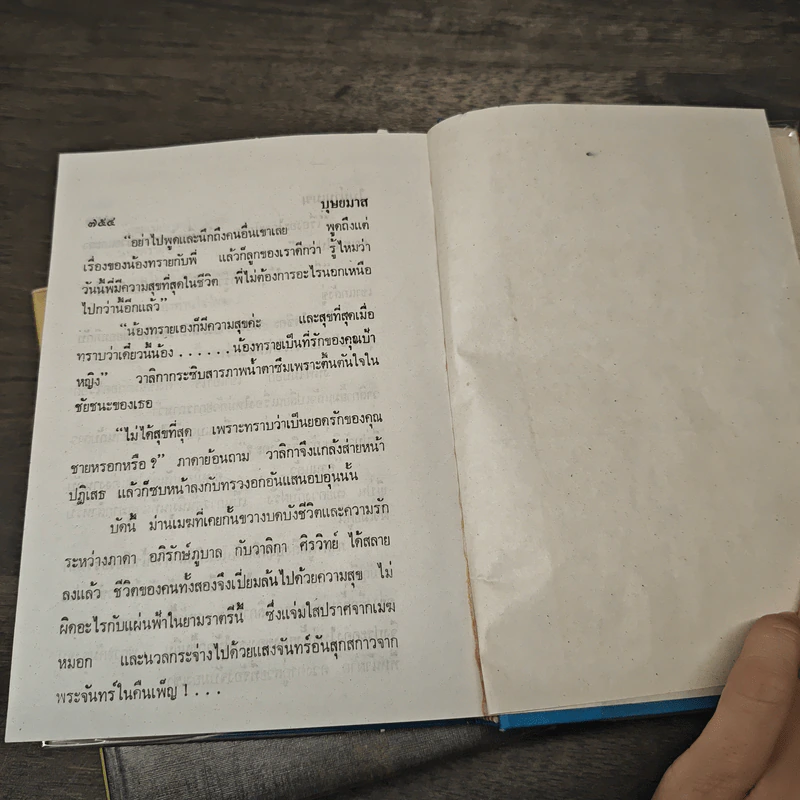 ๗๕๔ บุษยมาส
“อย่าไปพูดและนึกถึงคนอื่นเขาเลย พูดถึงแต่
เรื่องของน้องทรายกับพี่ แล้วก็ลูกของเราดีกว่า รู้ไหมว่า
วันนี้พี่มีความสุขที่สุดในชีวิต พี่ไม่ต้องการอะไรนอกเหนือ
ไปกว่านี้อีกแล้ว”
“น้องทรายเองก็มีความสุขค่ะ และสุขที่สุดเมื่อ
ทราบว่าเดี๋ยวนี้น้อง......น้องทรายเป็นที่รักของคุณป้า
หญิง” วาลิกากระซิบสารภาพน้ำตาซึมเพราะตื้นตันใจใน
ชัยชนะของเธอ
“ไม่ได้สุขที่สุด เพราะทราบว่าเป็นยอดรักของคุณ
ชายหรอกหรือ ?” ภาดาย้อนถาม วาลิกาจึงแกล้งส่ายหน้า
ปฏิเสธ แล้วก็ซบหน้าลงกับทรวงอกอันแสนอบอุ่นนั้น
บัดนี้ ม่านเมฆที่เคยกั้นขวางบดบังชีวิตและความรัก
ระหว่างภาดา อภิรักษ์ภูบาล กับวาลิกา ศิรวิทย์ ได้สลาย
ลงแล้ว ชีวิตของคนทั้งสองจึงเปี่ยมล้นไปด้วยความสุข ไม่
ผิดอะไรกับแผ่นฟ้าในยามราตรีนี้ ซึ่งแจ่มใสปราศจากเมฆ
หมอก และนวลกระจ่างไปด้วยแสงจันทร์อันสุกสกาวจาก
พระจันทร์ในคืนเพ็ญ ! ...